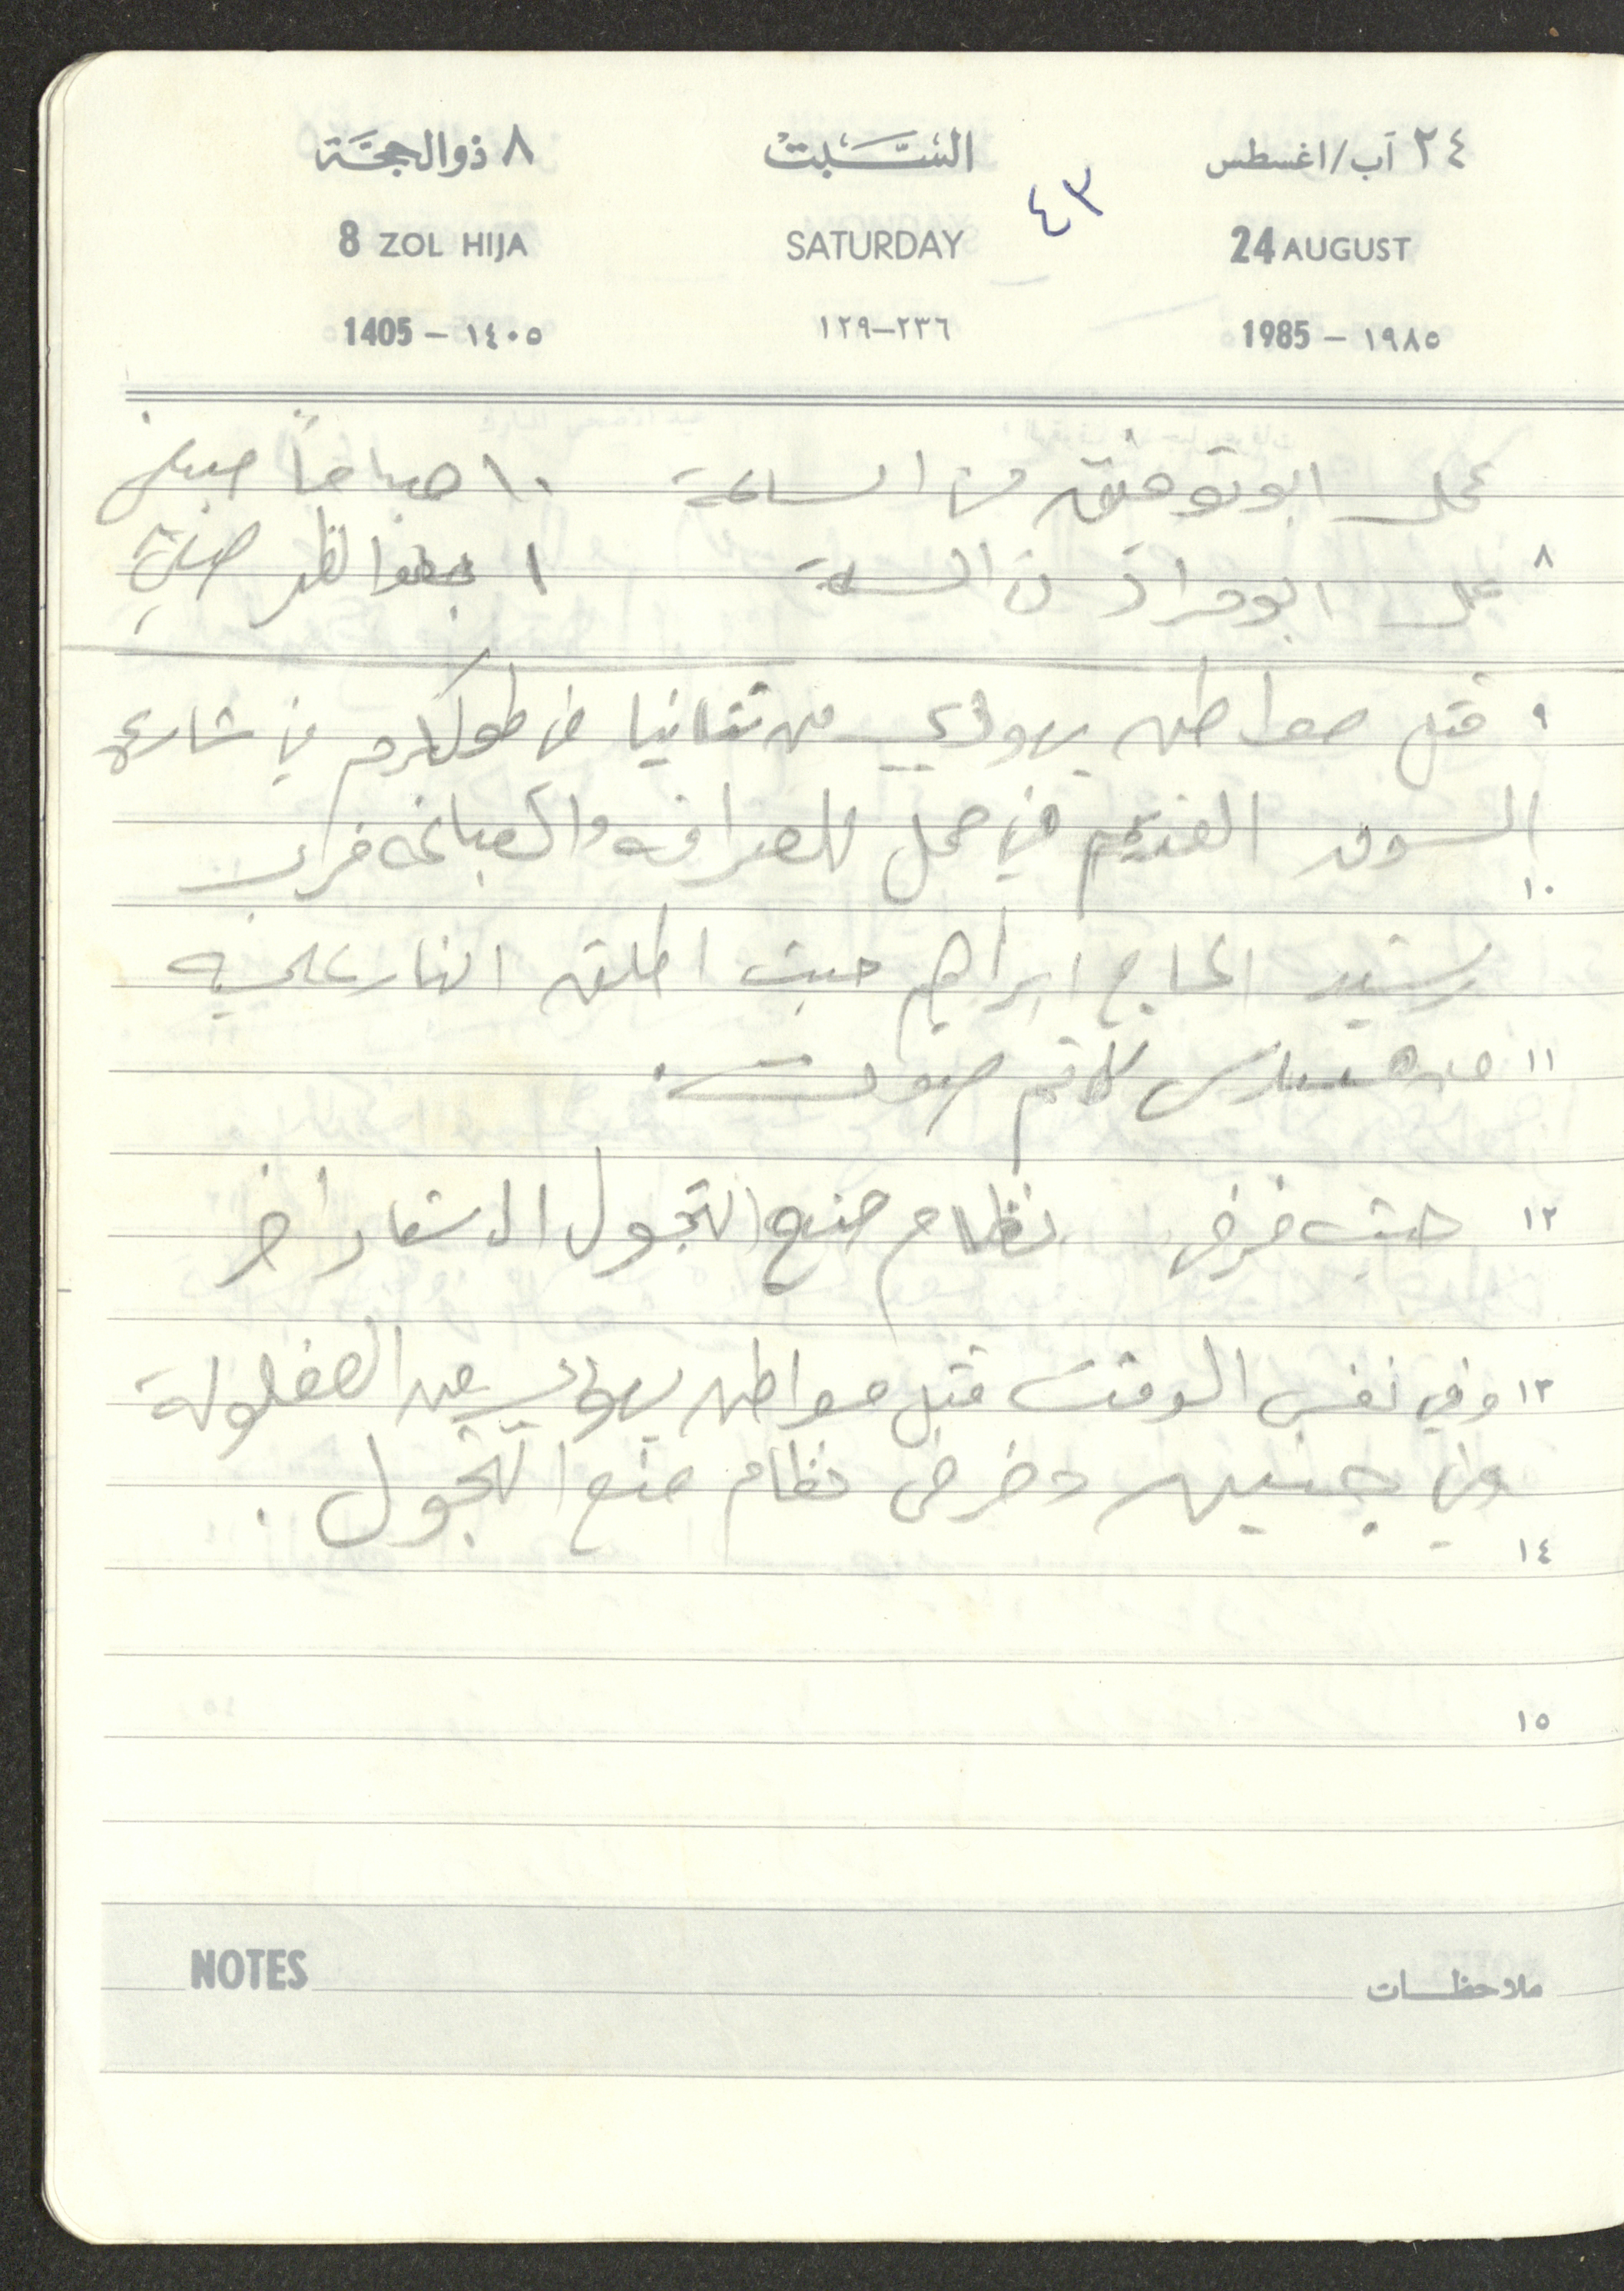 ٢٤ آب/اغسطس السَّبت ٨ ذوالحجَّة
٤٣
24 AUGUST SATURDAY 8 ZOL HIJA
1985 – ١٩٨٥ ١٢٩–٢٣٦ 1405 – ١٤٠٥
عمل ابو توفيق من الساعة ١٠ صباحاً
٨
عمل ابو مراد من الساعة ١ بعد الظهر
٩ قتل مواطن يهودي من نتانيا في طولكرم في شارع
السوق القديم في محل للصرافه والصياغه قرب
١٠
رشيد الحاج ابراهيم حيث اطلق النار عليه
١١ من مسدس كاتم صوت.
١٢ حيث فرض نظام منع التجول
١٣ وفي نفس الوقت قتل مواطن يهودي من العفولة
في جنين وفرض نظام منع التجول.
١٤
١٥
NOTES ملاحظات